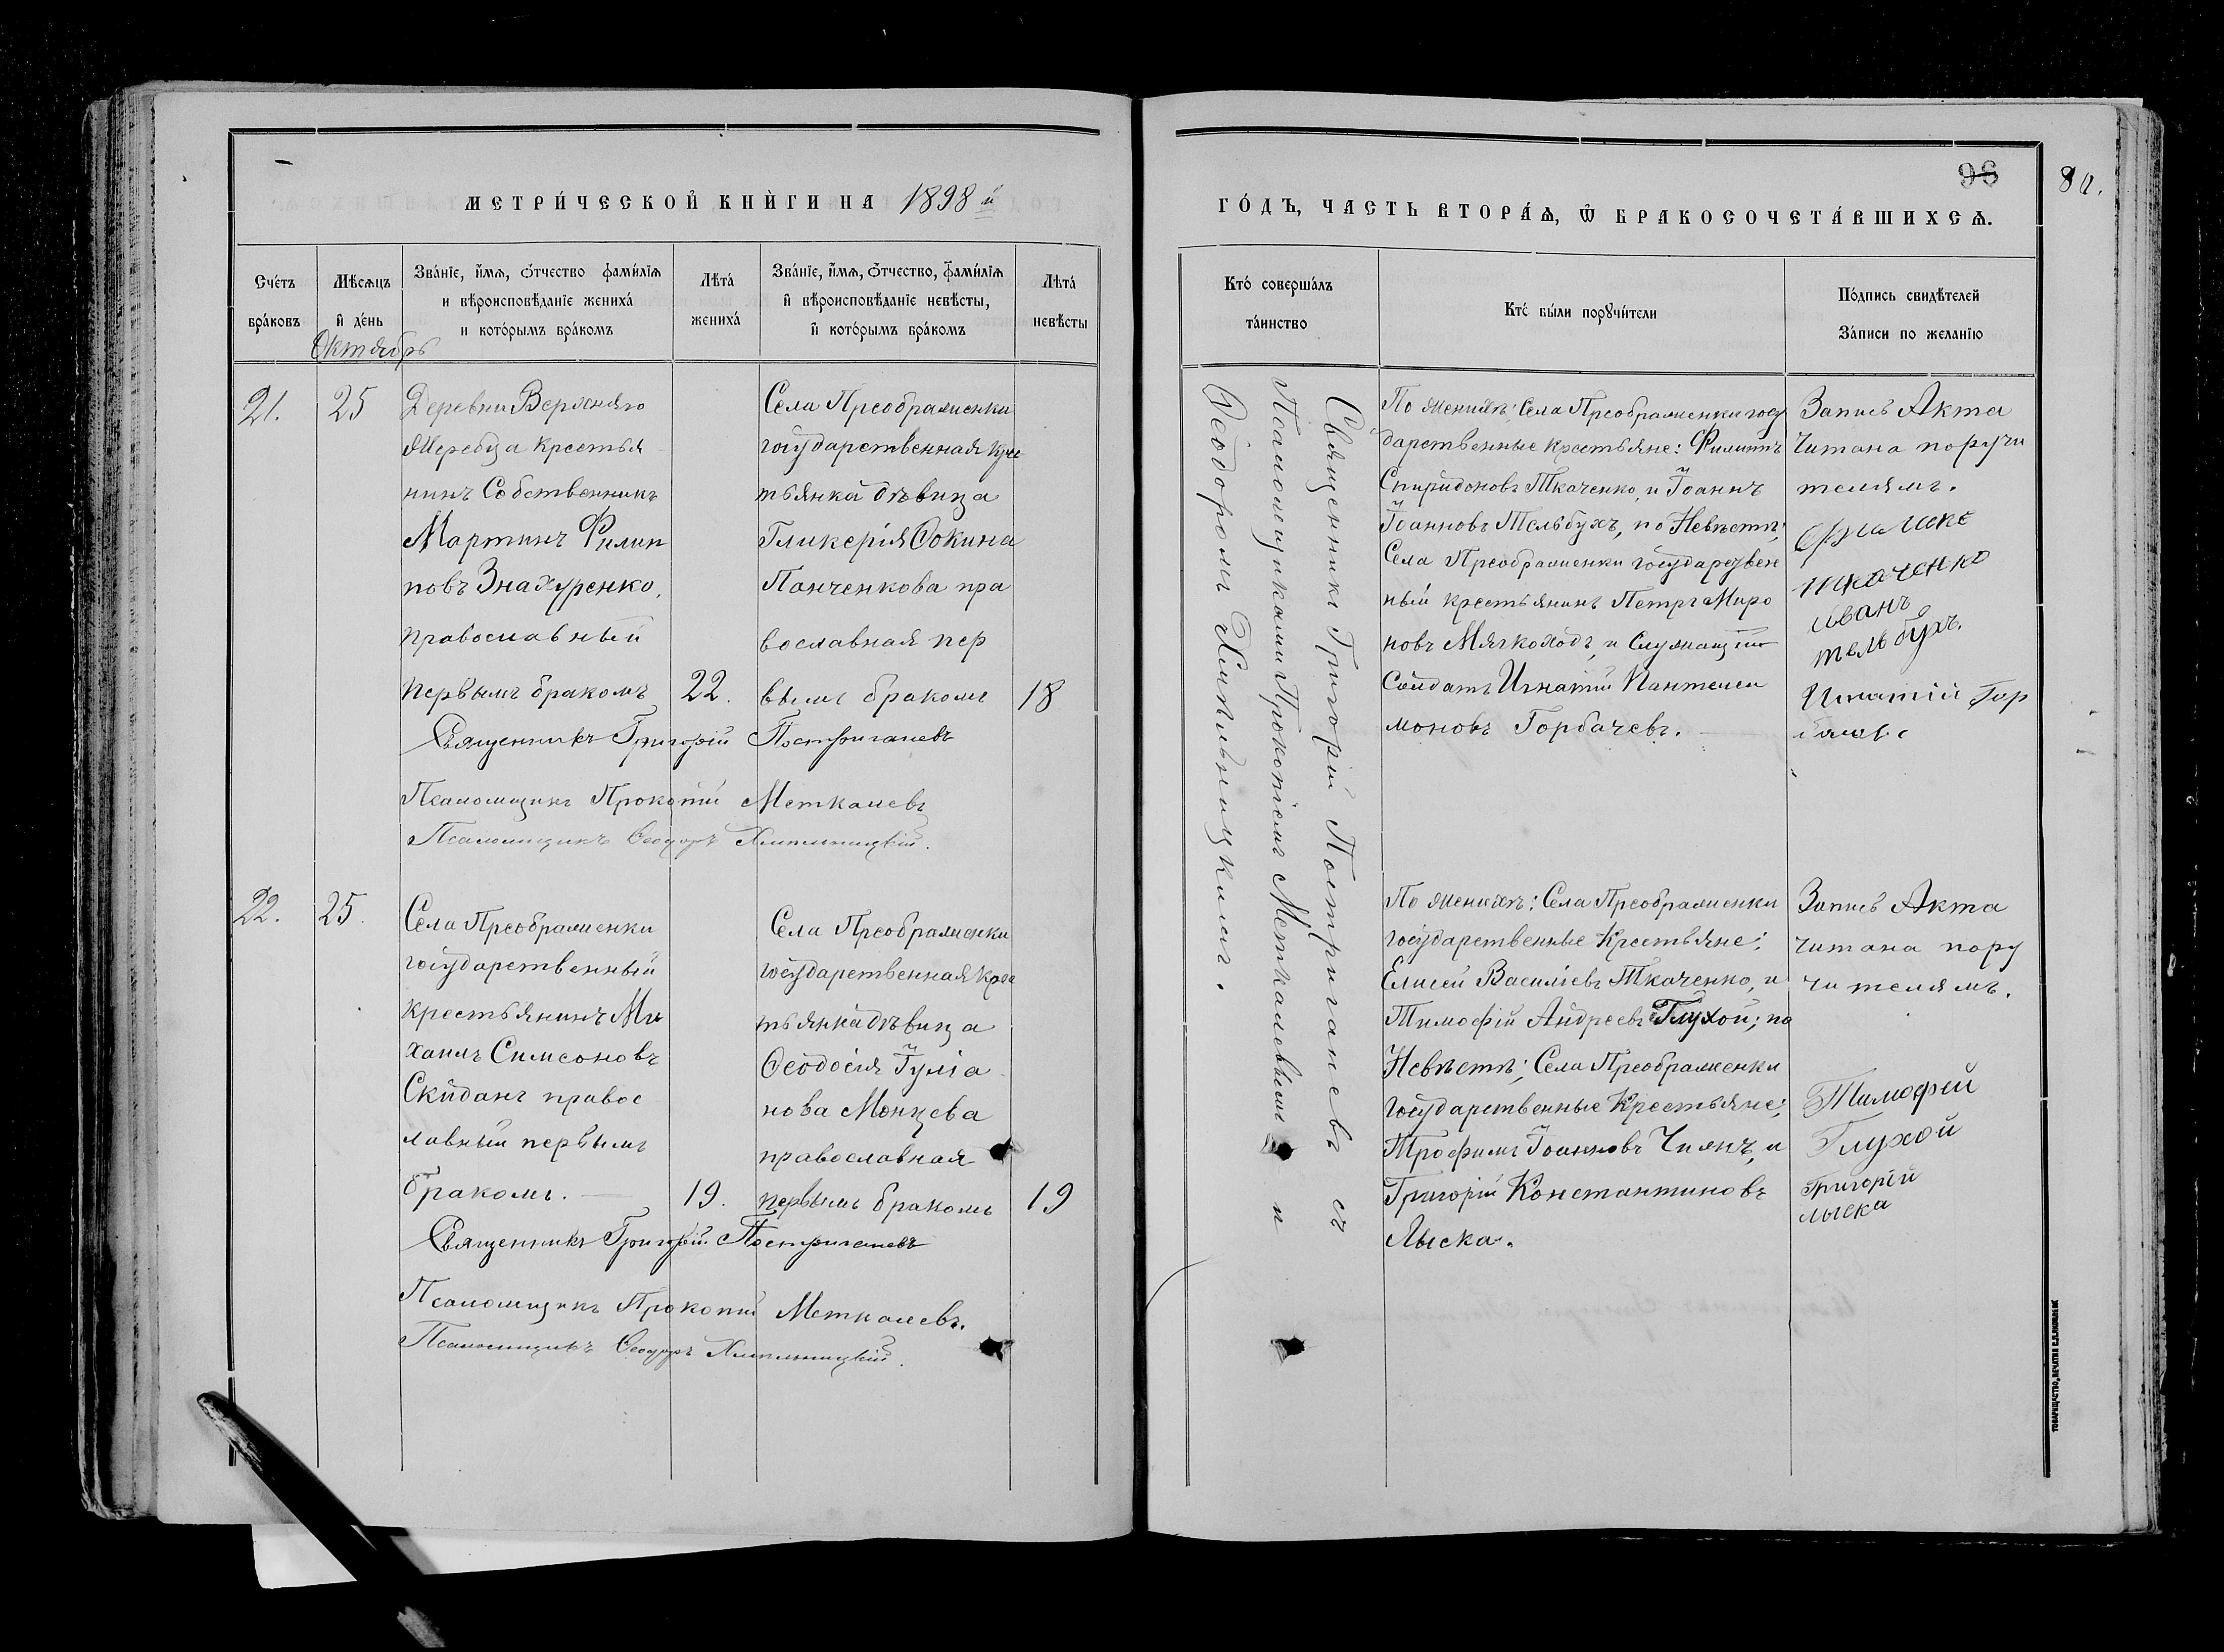 МЕТРИ́ЧЕСКОЙ КНИ́ГИ НА 1898 й
Сче́тъ
бра́ковъ
Мѣ́сѧцъ
и҆ де́нь
Октябрь
Зва́нїе, и҆́мѧ, ѻ҆́тчество фами́лїѧ
и вѣроисповѣ́данїе жениха́
и кото́рымъ бра́комъ
Лѣта́
жениха́
Зва́нїе, и҆́мѧ, ѻ҆́тчество, фами́лїѧ
и҆ вѣроисповѣ́данїе невѣ́сты,
и҆ кото́рымъ бра́комъ
Лѣта́
невѣ́сты
21.
25
Деревни Верхняго
Жеребца крестья
нинъ Собственникъ
Мартинъ Филип
повъ Знахуренко,
православный
первымъ бракомъ
22.
Села Преображенки
государственная крес
тьянка дѣвица
Гликерія Фокина
Панченкова пра
вославная пер
вымъ бракомъ
18
Священникъ Григорій Постригачевъ
Псаломщикъ Прокопій Меткалевъ
Псаломщикъ Ѳеодоръ Хмѣльницкій.
22.
25.
Села Преображенки
государственный
крестьянинъ Ми
хаилъ Симеоновъ
Скиданъ правос
лавный первымъ
бракомъ.
19.
Села Преображенки
государственная крес
тьянка дѣвица
Ѳеодосія Іуліа
нова Монцева
православная
первымъ бракомъ
19
Священникъ Григорій Постригачевъ
Псаломщикъ Прокопій Меткалевъ.
Псаломщикъ Ѳеодоръ Хмѣльницкій.
96
80.
ГО́ДЪ, ЧАСТЬ ВТОРА́Ѧ, Ѡ҆ БРАКОСОЧЕТА́ВШИХСѦ.
Кто́ соверша́лъ
та́инство
Кто́ бы́ли порꙋчи́тели
По́дпись свидѣ́телей
За́писи по жела́нїю
Священникъ Григорій Постригачевъ съ
Псаломщиками Прокопіемъ Меткалевымъ и
Ѳеодоромъ Хмѣльницкимъ.
По женихѣ: Села Преображенки госу
дарственные крестьяне: Филиппъ
Спиридоновъ Ткаченко, и Іоаннъ
Іоанновъ Тельбухъ, по Невѣстѣ;
Села Преображенки государствен
ный крестьянинъ Петръ Миро
новъ Мягкоходъ, и Служащій
Солдатъ Игнатій Пантелеи
моновъ Горбачевъ.
Запись Акта
читана поручи
телямъ.
ткаченко
иванъ
тельбухъ.
Игнатій Гор
По женихѣ: Села Преображенки
государственные Крестьяне;
Елисей Василіевъ Ткаченко, и
Тимофій Андреевъ Глухой; по
Невѣстѣ; Села Преображенки
государственные Крестьяне;
Трофимъ Іоанновъ Чиянъ, и
Григорій Константиновъ
Лыска.
Запись Акта
читана пору
чителямъ.
Тимофей
Глухой
Григорій
лыска